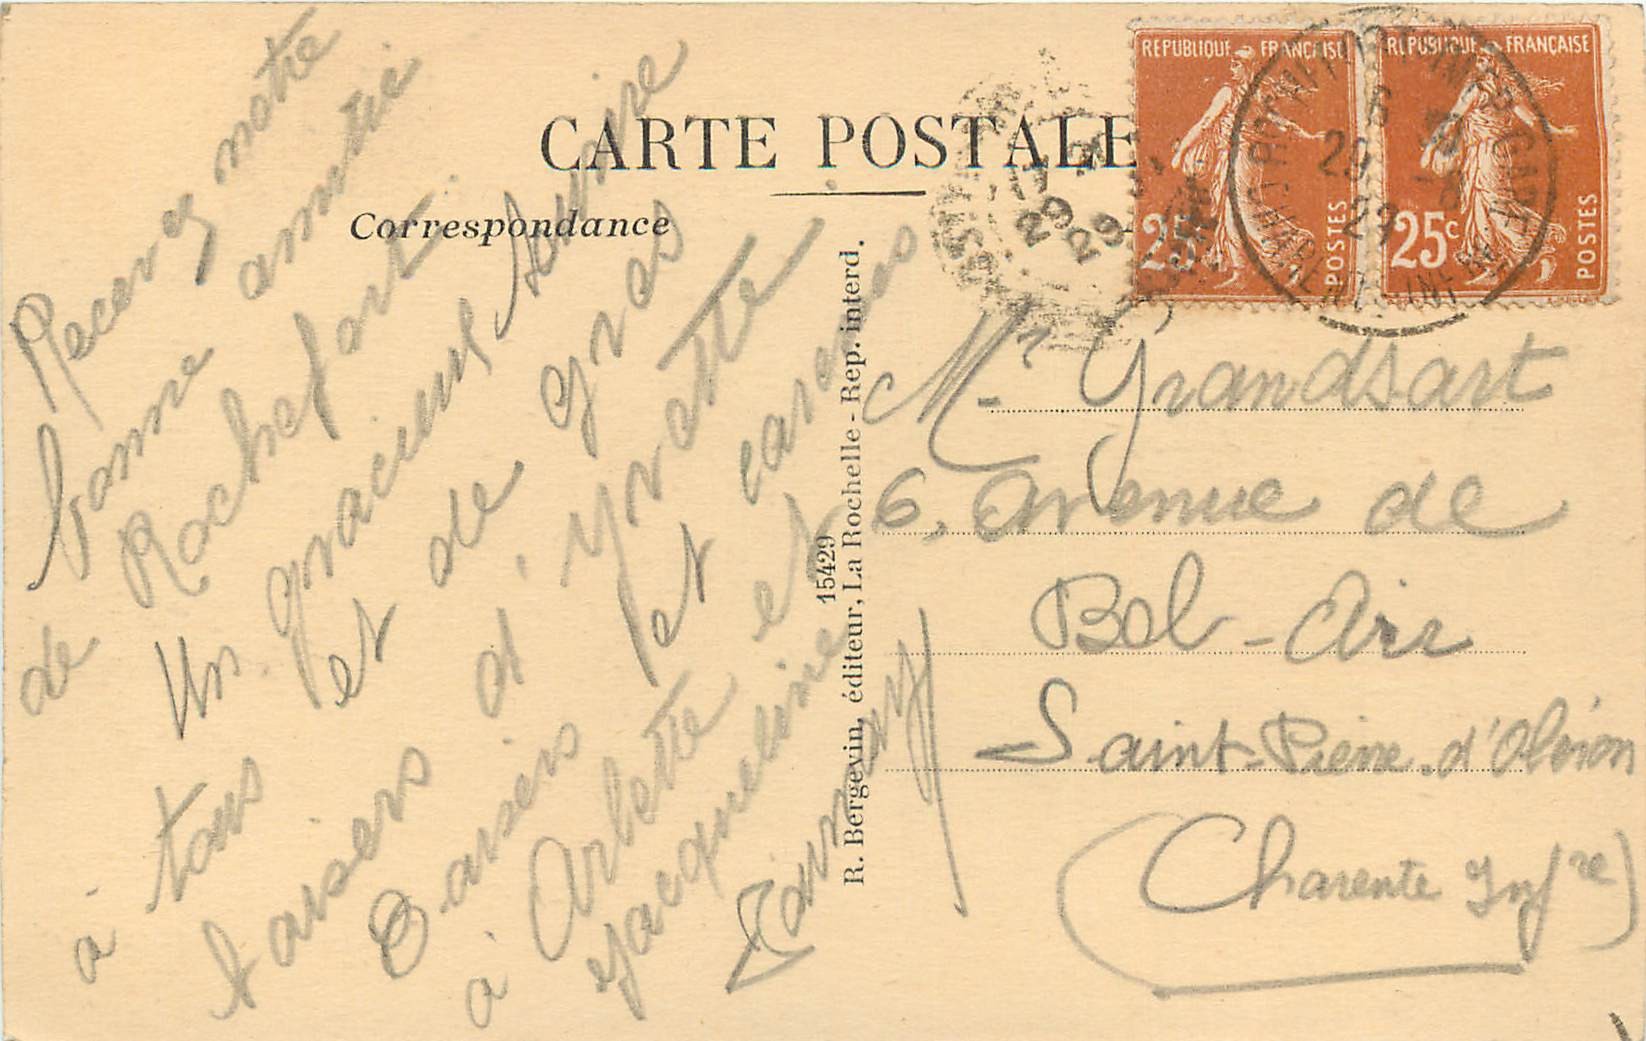 CARTE POSTALE
Correspondance
REPUBLIQUE FRANÇAISE
25
POSTES
REPUBLIQUE FRANÇAISE
25c
POSTES
6
29
29
Recevez notre
bonne amitié
de Rochefort.
Un gracieux sourire
et de gros
baisers d'Yvette
à tous
Baisers et caresses
à Arlette et
Jacqueline
15429
R. Bergevin, éditeur, La Rochelle - Rep. interd.
Mr Grandsart
6, avenue de
Bel-Air
Saint-Pierre d'Oléron
(Charente Infre)